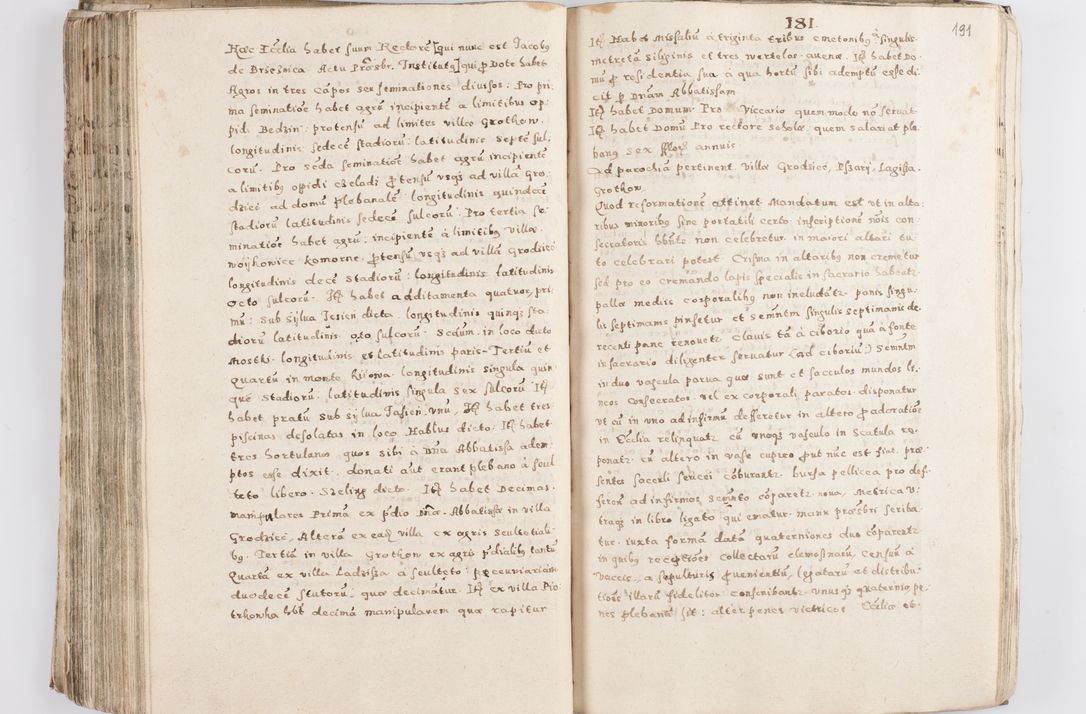 Hæc Ecclia habet suum Rectorē [qui nunc est Jacobus
de Brzeźnica Actu Præsbr. Institutus] qui p Dote habet
Agros in tres Cāpos seu seminationes diuisos: Pro pri
ma seminatiōe habet agrū incipientē a limitibus op
pid. Bedzin: protensū ad limites villæ Grotkow.
longitudinis sedecē stadiorū: latitudinis septē sul
corū. Pro sc̄da seminatiōe habet agrū incipientē
a limitibus opidi Czeladi protensū usq3 ad villā Gro
dziec ad domū plebanalē: longitudinis quindecē
stadiorū latitudinis sedecē sulcorū: Pro tertia se
minatiōe habet agrū; incipientē à limitibus villæ
woijkowice komorne. protensū usq3 ad villā Grodziec
longitudinis decē stadiorū: longitudinis latitudinis
Octo sulcorū. Itē habet additamenta quatuor, pri
mū: sub sijlua Jesień dicta. longitudinis quinq3 sta
diorū latitudinis octo sulcorū: Scdum. in loco dicto
Mostki. longitudinis et latitudinis paris. Tertiū et
Quartū in monte kijowa. longitudinis singula quin
que stadiorū. latitudinis singula sex sulcorū. Itē
habet pratū sub sijlua Jasień. vnū, Itē habet tres
piscinas desolatas in loco Hablus dicto: Itē habet
tres hortulanos quos sibi à Dnā Abbatissa adem
ptos esse dixit. donati aūt erant plebano à scul
teto libero. Szeling dicto. Itē habet Decimas.
manipulares Primā ex pdio Dnæ. Abbatissæ in villa
Grodziec, Alterā ex eadē villa ex agris scultetiali
bus. Tertiā in villa Grotkow ex agris pdialibus tantū
Quartā ex villa Ladzissa à sculteto: pecuniariam
duodecē scutorū. quæ decimatur. Itē ex villa Pio
trkowka hēt decimā manipularem quæ rapitur

181. 191
Itē Habet Missaliū à triginta tribus cmetonibus à singulis
metretā siliginis et tres wertelos auenæ. Itē habet Do
mū p residentia sua à qua hortū sibi ademptū esse di
cit p Dnām Abbatissam
Itē habet Domum Pro Viccario quem modo nō seruat.
Itē habet Domū Pro rectore scholæ. quem salariat ple
banus sex flor. annuis.
Ad parochiā pertinent villæ Grodziec, Pszarj. Lagissa.
Grotkow.
Quod reformationē attinet Mandatum est vt in alta:
ribus minoribus sine portatili certo inscriptionē nōis con
secratoris hbnte non celebretur in maiori altari tu:
to celebrari potest. Crisma in altaribus non cremetur
sed pro eo cremando lapis specialis in sacrario habeatur
pallæ mediis corporalibus non includātr. panis singu
lis septimanis pinsetur et semntm singulis septimanis de
recenti pane renouetr. Clauis tā à ciborio quā à fonte
in sacrario diligenter seruatur (ad ciboriū) semntm
in duo vascula parua quæ sunt et sacculos mundos li
neos Consecratos. vel ex corporali paratos disponatur
vt cū in vno ad infirmū defferetur in altero p adoratiōe
in Ecclia relinquatr cū vnoqs vasculo in Scatula re
ponatr. cū altero in vase cupreo put nūc est fiat. præ
sentes saceli sericei cōburantr. bursa pellicea pro defe
ferendo ad infirmos semnto cōparetr noua, Metrica v:
traqs in libro ligato qui ematur. manu præsbri scriba:
tur. iuxta formā datā quaterniones duo cōparentr
in quibus receptiōes collectarū elemosinarū, Censuū à
vaccis, a sepulturis puenientiū, legatarū et distribu
tiōes illarū fideliter conscribantr. vnus qs quaternio pe:
nes plebanū sit: alter penes victricos Eccliæ ob